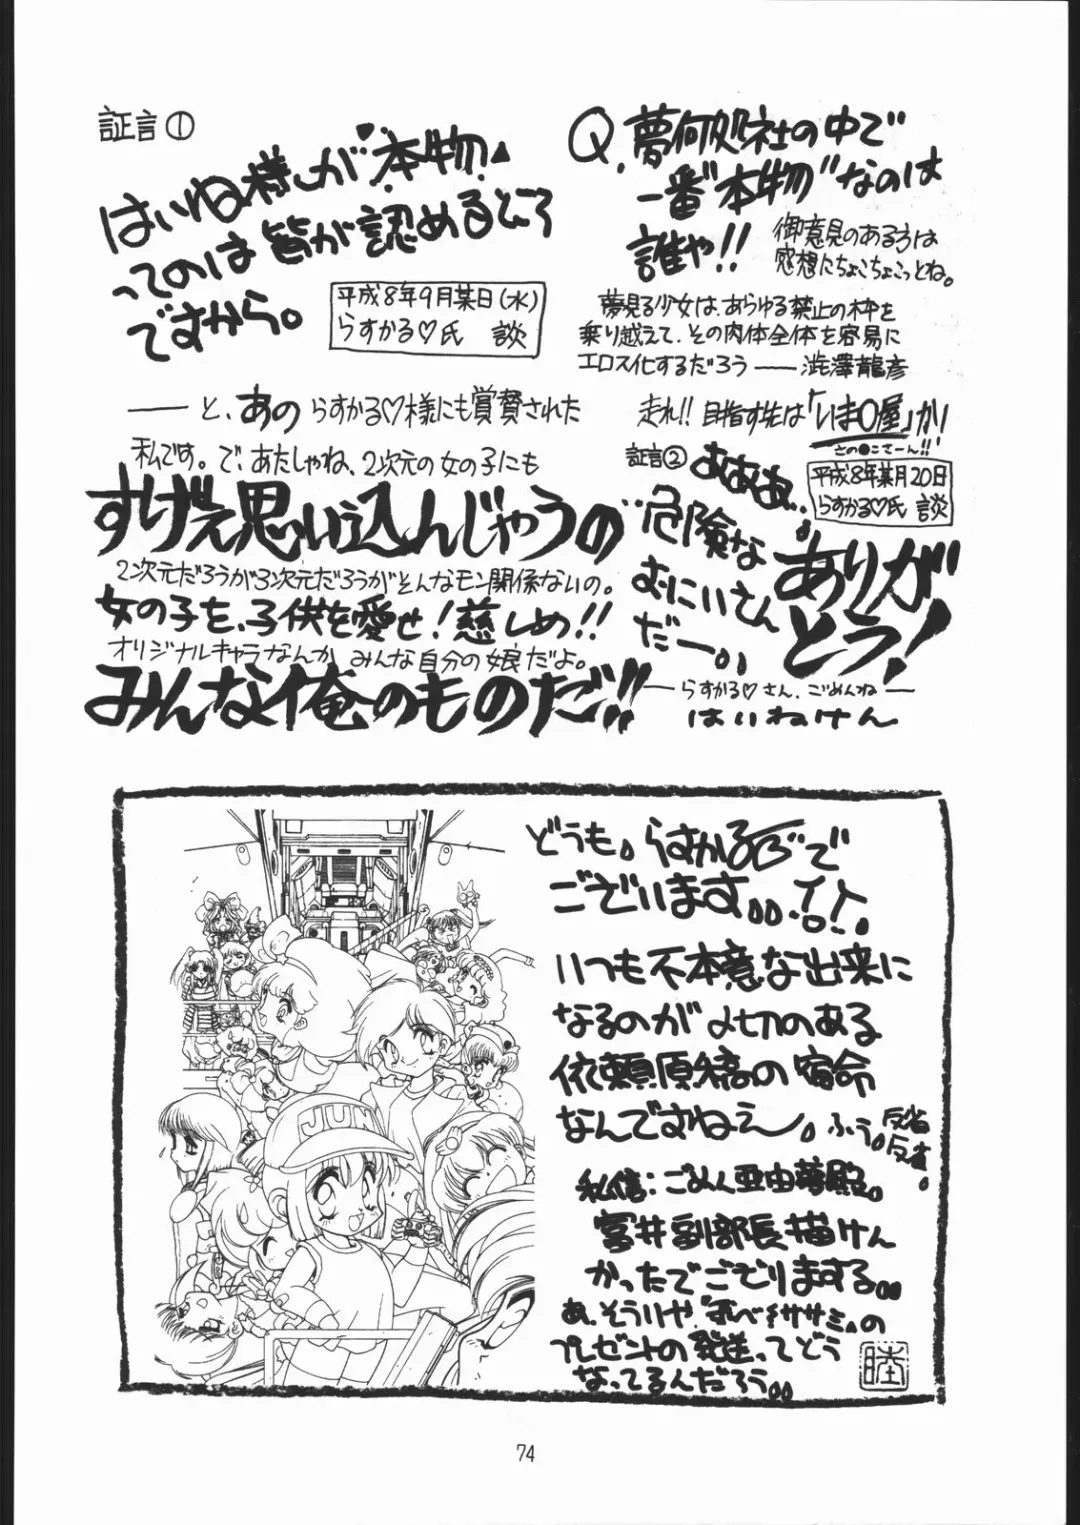 証言①
はいね様が“本物”
ってのは皆が認めるところ
ですから。
平成8年9月某日(水)
らすかる♡氏 談
── と、あの らすかる♡様にも賞賛された
私です。で、あたしゃね、2次元の女の子にも
すげえ思い込んじゃうの
2次元だろうが3次元だろうがそんなモン関係ないの。
女の子を、子供を愛せ！慈しめ!!
オリジナルキャラなんか みんな自分の娘だよ。
みんな俺のものだ!!
Q.夢何処社の中で
一番“本物”なのは
誰や!!
御意見のある方は
感想にちょこちょこっとね。
夢見る少女は、あらゆる禁止の枠を
乗り越えて、その肉体全体を容易に
エロス化するだろう ── 澁澤龍彦
走れ!! 目指す先は「いま〇屋」か!
さの●こさーん!!
証言②
ああああ…
危険な
おにいさん
だー。。
平成8年某月20日
らすかる♡氏 談
ありが
とう！
── らすかる♡さん、ごめんね ──
はいねけん
どうも。らすかるで
ございます。。
いつも不本意な出来に
なるのが〆切のある
依頼原稿の宿命
なんですねえ～。ふぅ。反省反省。
私信：ごめん亜由夢殿。
宮井副部長描けん
かったでござりまする。。
あ、そういや、
ササミ"の
プレゼントの発送ってどう
なってるんだろう。。
JUN
睦
74